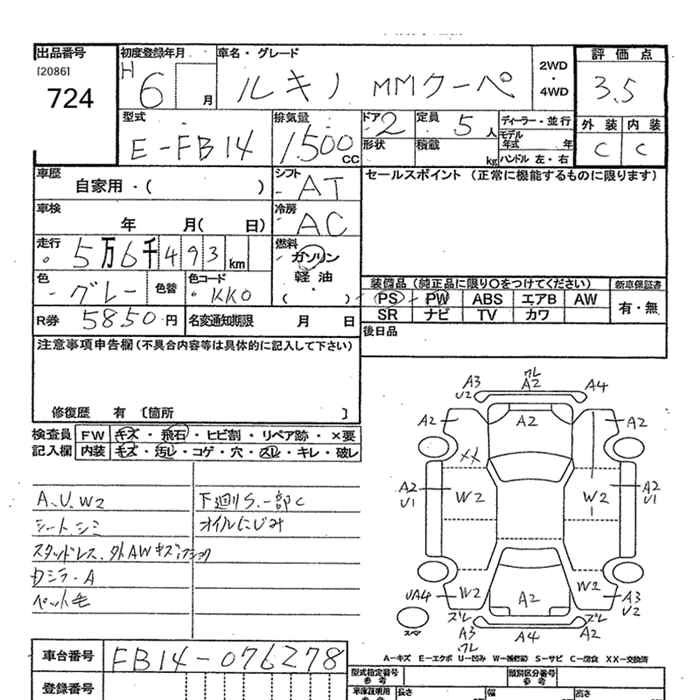 出品番号
[2086]
724
初度登録年月
H 6 月
車名・グレード
ルキノ MMクーペ
2WD
・
4WD
評価点
3.5
外装 内装
C C
型式
E-FB14
排気量
1500 cc
ドア 2
形状
定員 5 人
積載 kg
ディーラー・並行
モデル年式 年
ハンドル 左・右
車歴
自家用・( )
シフト
AT
車検
年 月( 日)
冷房
AC
走行
5万6千493km
燃料
ガソリン
軽油
( )
色
グレー
色替
色コード
KK0
R券 5850円
名変通知期限 月 日
セールスポイント (正常に機能するものに限ります)
装備品(純正品に限り○をつけてください)
PS PW ABS エアB AW
SR ナビ TV カワ
新車保証書
有・無
後日品
注意事項申告欄(不具合内容等は具体的に記入して下さい)
修復歴 有 〔箇所 〕
検査員記入欄
FW キズ・飛石・ヒビ割・リペア跡・×要
内装 キズ・汚レ・コゲ・穴・スレ・キレ・破レ
A.U.W2
シートシミ
スタッドレス.外AWキズ
カジラ・A
ペット毛
下廻りS.一部C
オイルにじみ
A3
U2
ワレ
A2
A4
A2
A2
A2
XX
A2
U1
W2
W2
A2
U1
UA4
W2
A2
W2
A3
U2
スペア
ズレ
A3
ワレ
A4
ズレ
A2
A-キズ E-エクボ U-凹み W-補修跡 S-サビ C-腐食 XX-交換済
車台番号 FB14-076278
登録番号
型式指定番号
参考
類別区分番号
参考
車庫証明用
参考
長さ
幅
高さ